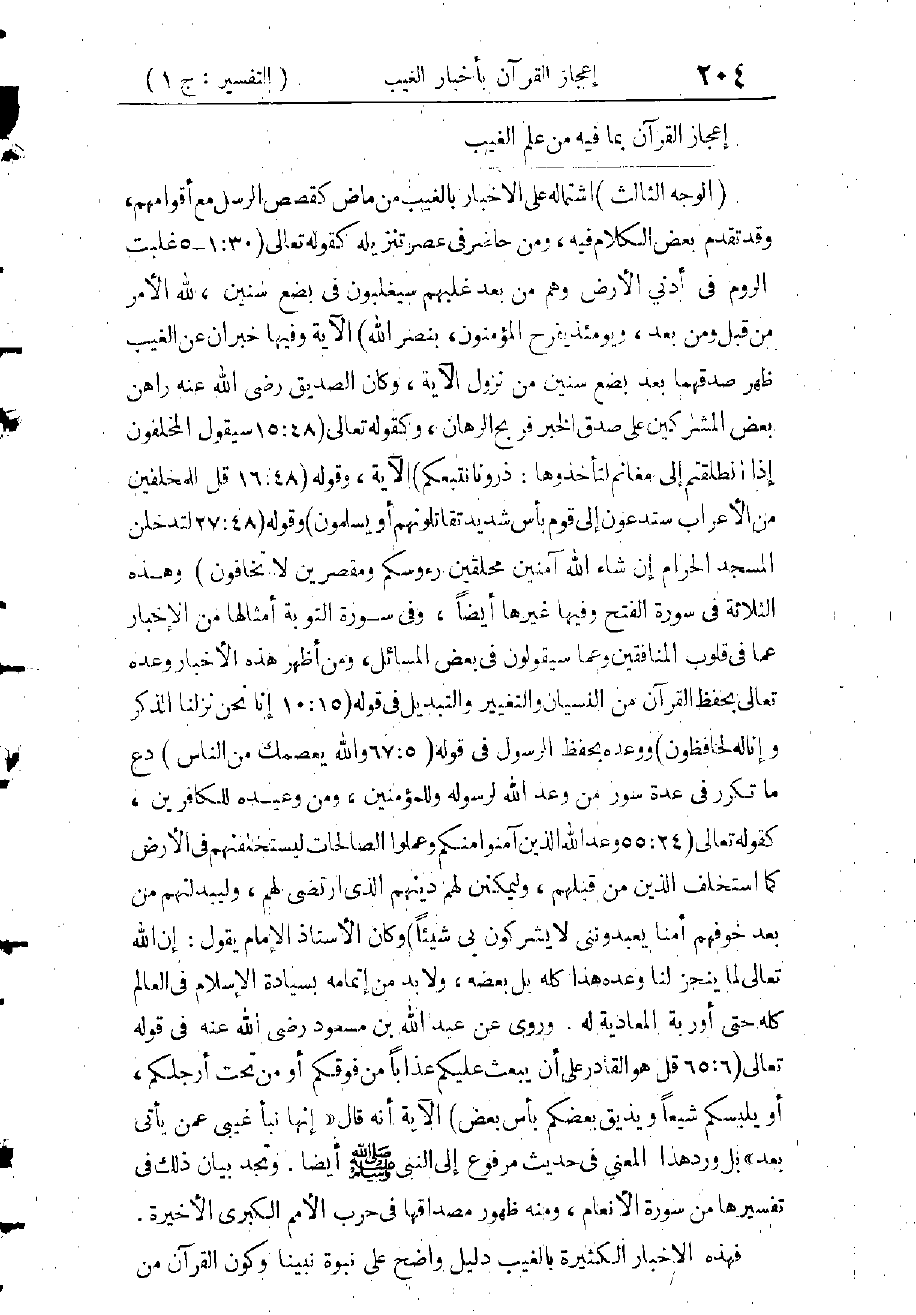 ٢٠٤ إعجاز القرآن بأخبار الغيب ( التفسير : ج ١ )
إعجاز القرآن بما فيه من علم الغيب
( الوجه الثالث ) اشتماله على الاخبار بالغيب من ماض كقصص الرسل مع أقوامهم،
وقد تقدم بعض الكلام فيه ، ومن حاضر فى عصر تنزيله كقوله تعالى (٣٠:١ـ٥ غلبت
الروم فى أدني الأرض وهم من بعد غلبهم سيغلبون فى بضع سنين ، لله الأمر
من قبل ومن بعد ، ويومئذ يفرح المؤمنون، بنصر الله) الآية وفيها خبران عن الغيب
ظهر صدقهما بعد بضع سنين من نزول الآية ، وكان الصديق رضى الله عنه راهن
بعض المشركين على صدق الخبر فربح الرهان ، وكقوله تعالى (٤٨:١٥ سيقول المخلفون
إذا انطلقتم إلى مغانم لتأخذوها : ذرونا نتبعكم) الآية ، وقوله (٤٨:١٦ قل للمخلفين
من الأعراب ستدعون إلى قوم بأس شديد تقاتلونهم أو يسلمون) وقوله (٤٨:٢٧ لتدخلن
المسجد الحرام إن شاء الله آمنين محلقين رءوسكم ومقصرين لا تخافون ) وهـذه
الثلاثة فى سورة الفتح وفيها غيرها أيضاً ، وفى سـورة التوبة أمثالها من الإخبار
عما فى قلوب المنافقين وعما سيقولون فى بعض المسائل، ومن أظهر هذه الأخبار وعده
تعالى بحفظ القرآن من النسيان والتغيير والتبديل فى قوله (١٥:١٠ إنا نحن نزلنا الذكر
وإنا له لحافظون) ووعده بحفظ الرسول فى قوله (٥:٦٧ والله يعصمك من الناس ) دع
ما تكرر فى عدة سور من وعد الله لرسوله وللمؤمنين ، ومن وعيـده للكافرين ،
كقوله تعالى (٢٤:٥٥ وعد الله الذين آمنوا منكم وعملوا الصالحات ليستخلفنهم فى الأرض
كما استخلف الذين من قبلهم ، وليمكنن لهم دينهم الذى ارتضى لهم ، وليبدلنهم من
بعد خوفهم أمنا يعبدوننى لا يشركون بى شيئاً) وكان الأستاذ الإمام يقول : إن الله
تعالى لما ينجز لنا وعده هذا كله بل بعضه ، ولا بد من إتمامه بسيادة الإسلام فى العالم
كله حتى أوربة المعادية له . وروى عن عبد الله بن مسعود رضى الله عنه فى قوله
تعالى (٦:٦٥ قل هو القادر على أن يبعث عليكم عذاباً من فوقكم أو من تحت أرجلكم ،
أو يلبسكم شيعاً ويذيق بعضكم بأس بعض) الآية أنه قال « إنها نبأ غيبى عمن يأتى
بعد » بل ورد هذا المعني فى حديث مرفوع إلى النبى ﷺ أيضا . وتجد بيان ذلك فى
تفسيرها من سورة الأنعام ، ومنه ظهور مصداقها فى حرب الأمم الكبرى الأخيرة .
فهذه الاخبار الكثيرة بالغيب دليل واضح على نبوة نبينا وكون القرآن من